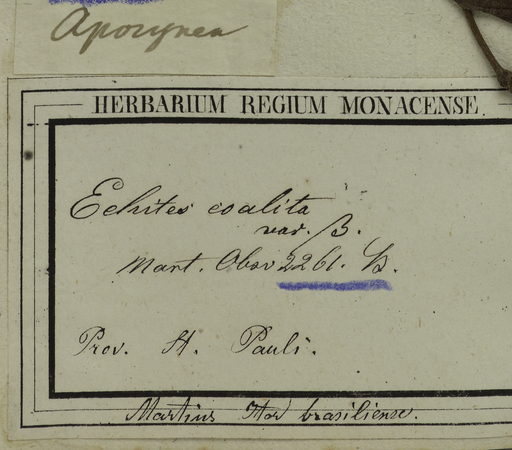 Apocynea
HERBARIUM REGIUM MONACENSE
Echites coalita
var. β.
Mart. Obsv 2261. b.
Prov. St. Pauli.
Martius Iter brasiliense.